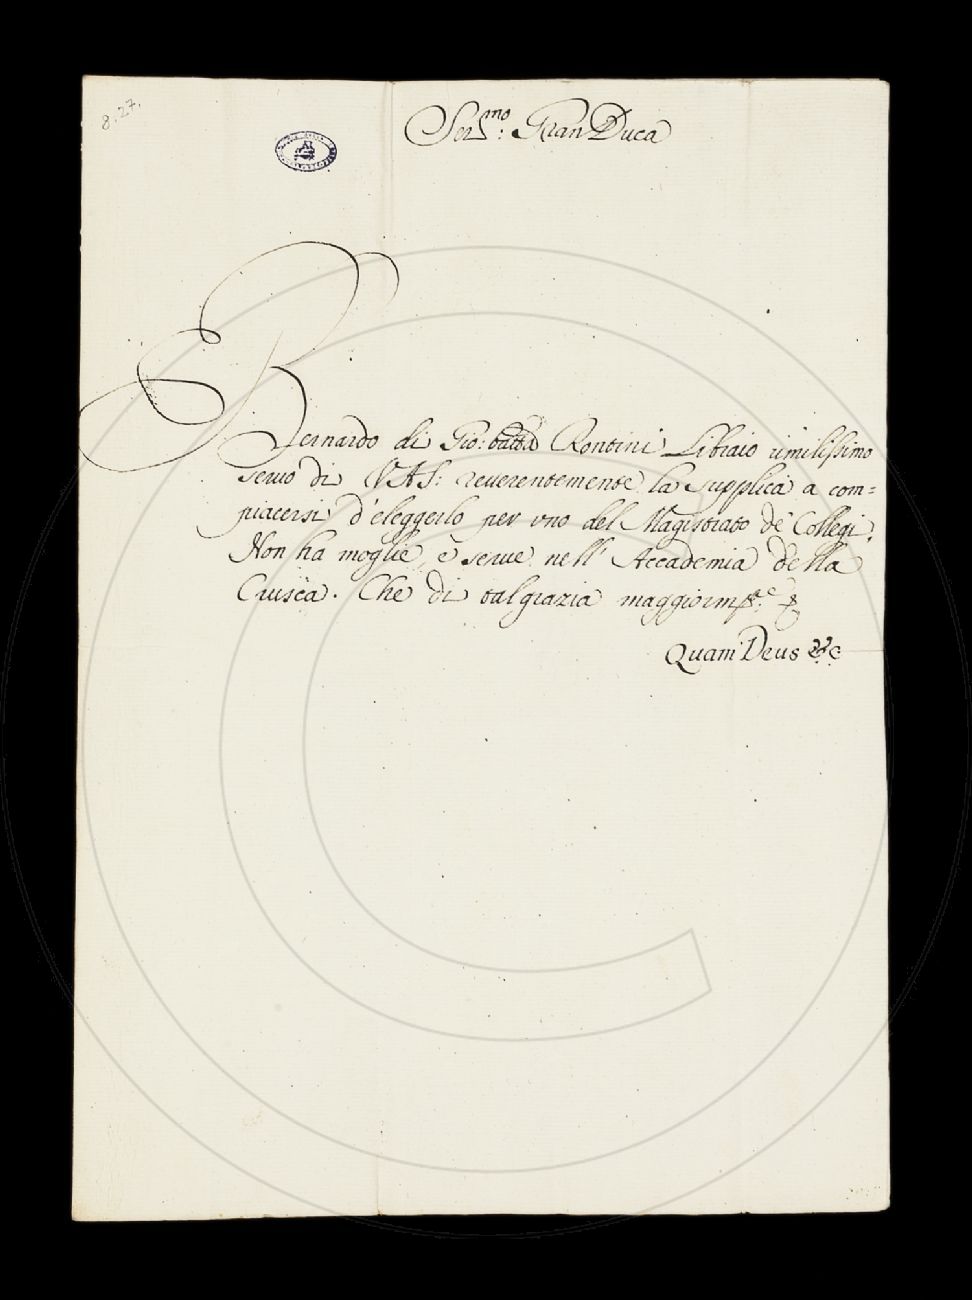 8.27.
Ser.mo Gran Duca
Bernardo di Gio: batta Rontini Libraio umilissimo
servo di VAS: reverentemente la supplica a com=
piacersi d'eleggerlo per vno del Magistrato de' Collegi.
Non ha moglie, è serve nell' Accademia della
Crusca. Che di tal grazia maggiorm.te
Quam Deus &c